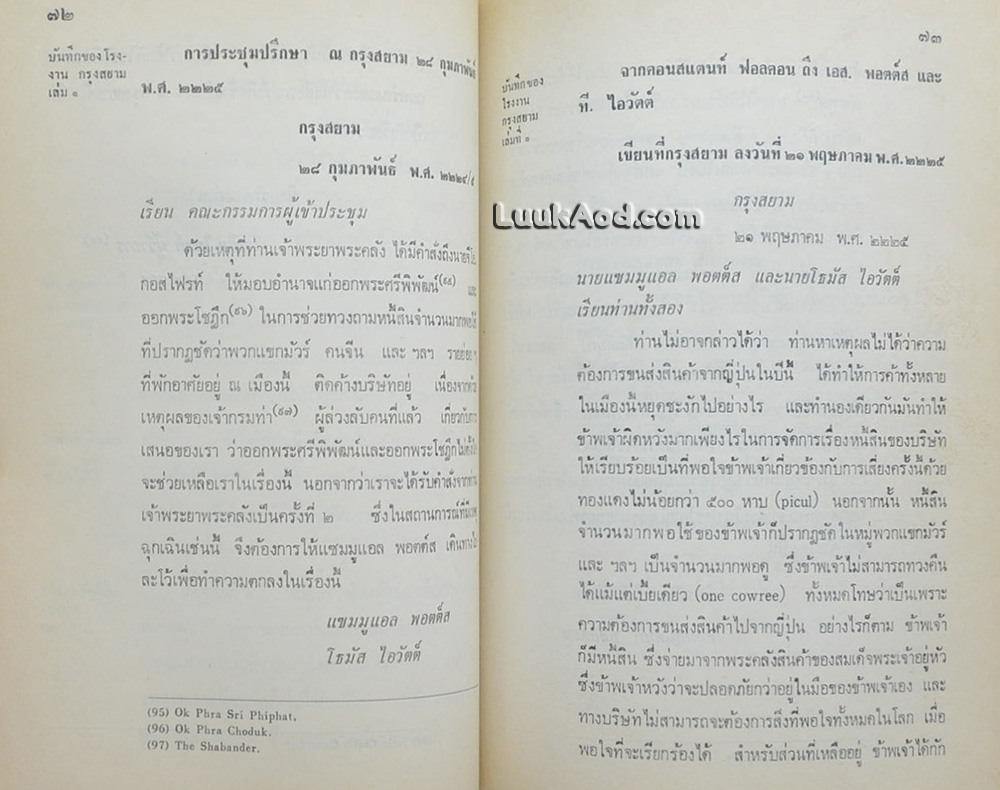 ๗๒
บันทึกของโรง-
งาน กรุงสยาม
เล่ม ๑
การประชุมปรึกษา ณ กรุงสยาม ๒๘ กุมภาพันธ์
พ.ศ. ๒๒๒๕
กรุงสยาม
๒๘ กุมภาพันธ์ พ.ศ. ๒๒๒๔/๕
เรียน คณะกรรมการผู้เข้าประชุม
ด้วยเหตุที่ท่านเจ้าพระยาพระคลัง ได้มีคำสั่งถึงนาย
กอสไฟรท์ ให้มอบอำนาจแก่ออกพระศรีพิพัฒน์(๙๕) และ
ออกพระโชฎึก(๙๖) ในการช่วยทวงถามหนี้สินจำนวนมาก
ที่ปรากฏชัดว่าพวกแขกมัวร์ คนจีน และ ฯลฯ
ที่พักอาศัยอยู่ ณ เมืองนี้ ติดค้างบริษัทอยู่ เนื่องจาก
เหตุผลของเจ้ากรมท่า(๙๗) ผู้ล่วงลับคนที่แล้ว เกี่ยวกับการ
เสนอของเรา ว่าออกพระศรีพิพัฒน์และออกพระโชฎึก
จะช่วยเหลือเราในเรื่องนี้ นอกจากว่าเราจะได้รับคำสั่งจากท่าน
เจ้าพระยาพระคลังเป็นครั้งที่ ๒ ซึ่งในสถานการณ์ที่มีเหตุ
ฉุกเฉินเช่นนี้ จึงต้องการให้แซมมูแอล พอตต์ส เดินทางไป
ละโว้เพื่อทำความตกลงในเรื่องนี้
แซมมูแอล พอตต์ส
โธมัส ไอวัตต์
(95) Ok Phra Sri Phiphat,
(96) Ok Phra Choduk.
(97) The Shabander.
๗๓
บันทึกของ
โรงงาน
กรุงสยาม
เล่มที่ ๑
จากคอนสแตนท์ ฟอลคอน ถึง เอส. พอตต์ส และ
ที. ไอวัตต์
เขียนที่กรุงสยาม ลงวันที่ ๒๑ พฤษภาคม พ.ศ.๒๒๒๕
กรุงสยาม
๒๑ พฤษภาคม พ.ศ. ๒๒๒๕
นายแซมมูแอล พอตต์ส และนายโธมัส ไอวัตต์
เรียนท่านทั้งสอง
ท่านไม่อาจกล่าวได้ว่า ท่านหาเหตุผลไม่ได้ว่าความ
ต้องการขนส่งสินค้าจากญี่ปุ่นในปีนี้ ได้ทำให้การค้าทั้งหลาย
ในเมืองนี้หยุดชะงักไปอย่างไร และทำนองเดียวกันมันทำให้
ข้าพเจ้าผิดหวังมากเพียงไรในการจัดการเรื่องหนี้สินของบริษัท
ให้เรียบร้อยเป็นที่พอใจข้าพเจ้าเกี่ยวข้องกับการเสี่ยงครั้งนี้ด้วย
ทองแดงไม่น้อยกว่า ๕๐๐ หาบ (picul) นอกจากนั้น หนี้สิน
จำนวนมากพอใช้ของข้าพเจ้าก็ปรากฏชัดในหมู่พวกแขกมัวร์
และ ฯลฯ เป็นจำนวนมากพอดู ซึ่งข้าพเจ้าไม่สามารถทวงคืน
ได้แม้แต่เบี้ยเดียว (one cowree) ทั้งหมดโทษว่าเป็นเพราะ
ความต้องการขนส่งสินค้าไปจากญี่ปุ่น อย่างไรก็ตาม ข้าพเจ้า
ก็มีหนี้สิน ซึ่งจ่ายมาจากพระคลังสินค้าของสมเด็จพระเจ้าอยู่หัว
ซึ่งข้าพเจ้าหวังว่าจะปลอดภัยกว่าอยู่ในมือของข้าพเจ้าเอง และ
ทางบริษัทไม่สามารถจะต้องการสิ่งที่พอใจทั้งหมดในโลก เมื่อ
พอใจที่จะเรียกร้องได้ สำหรับส่วนที่เหลืออยู่ ข้าพเจ้าได้กัก
LuukAod.com